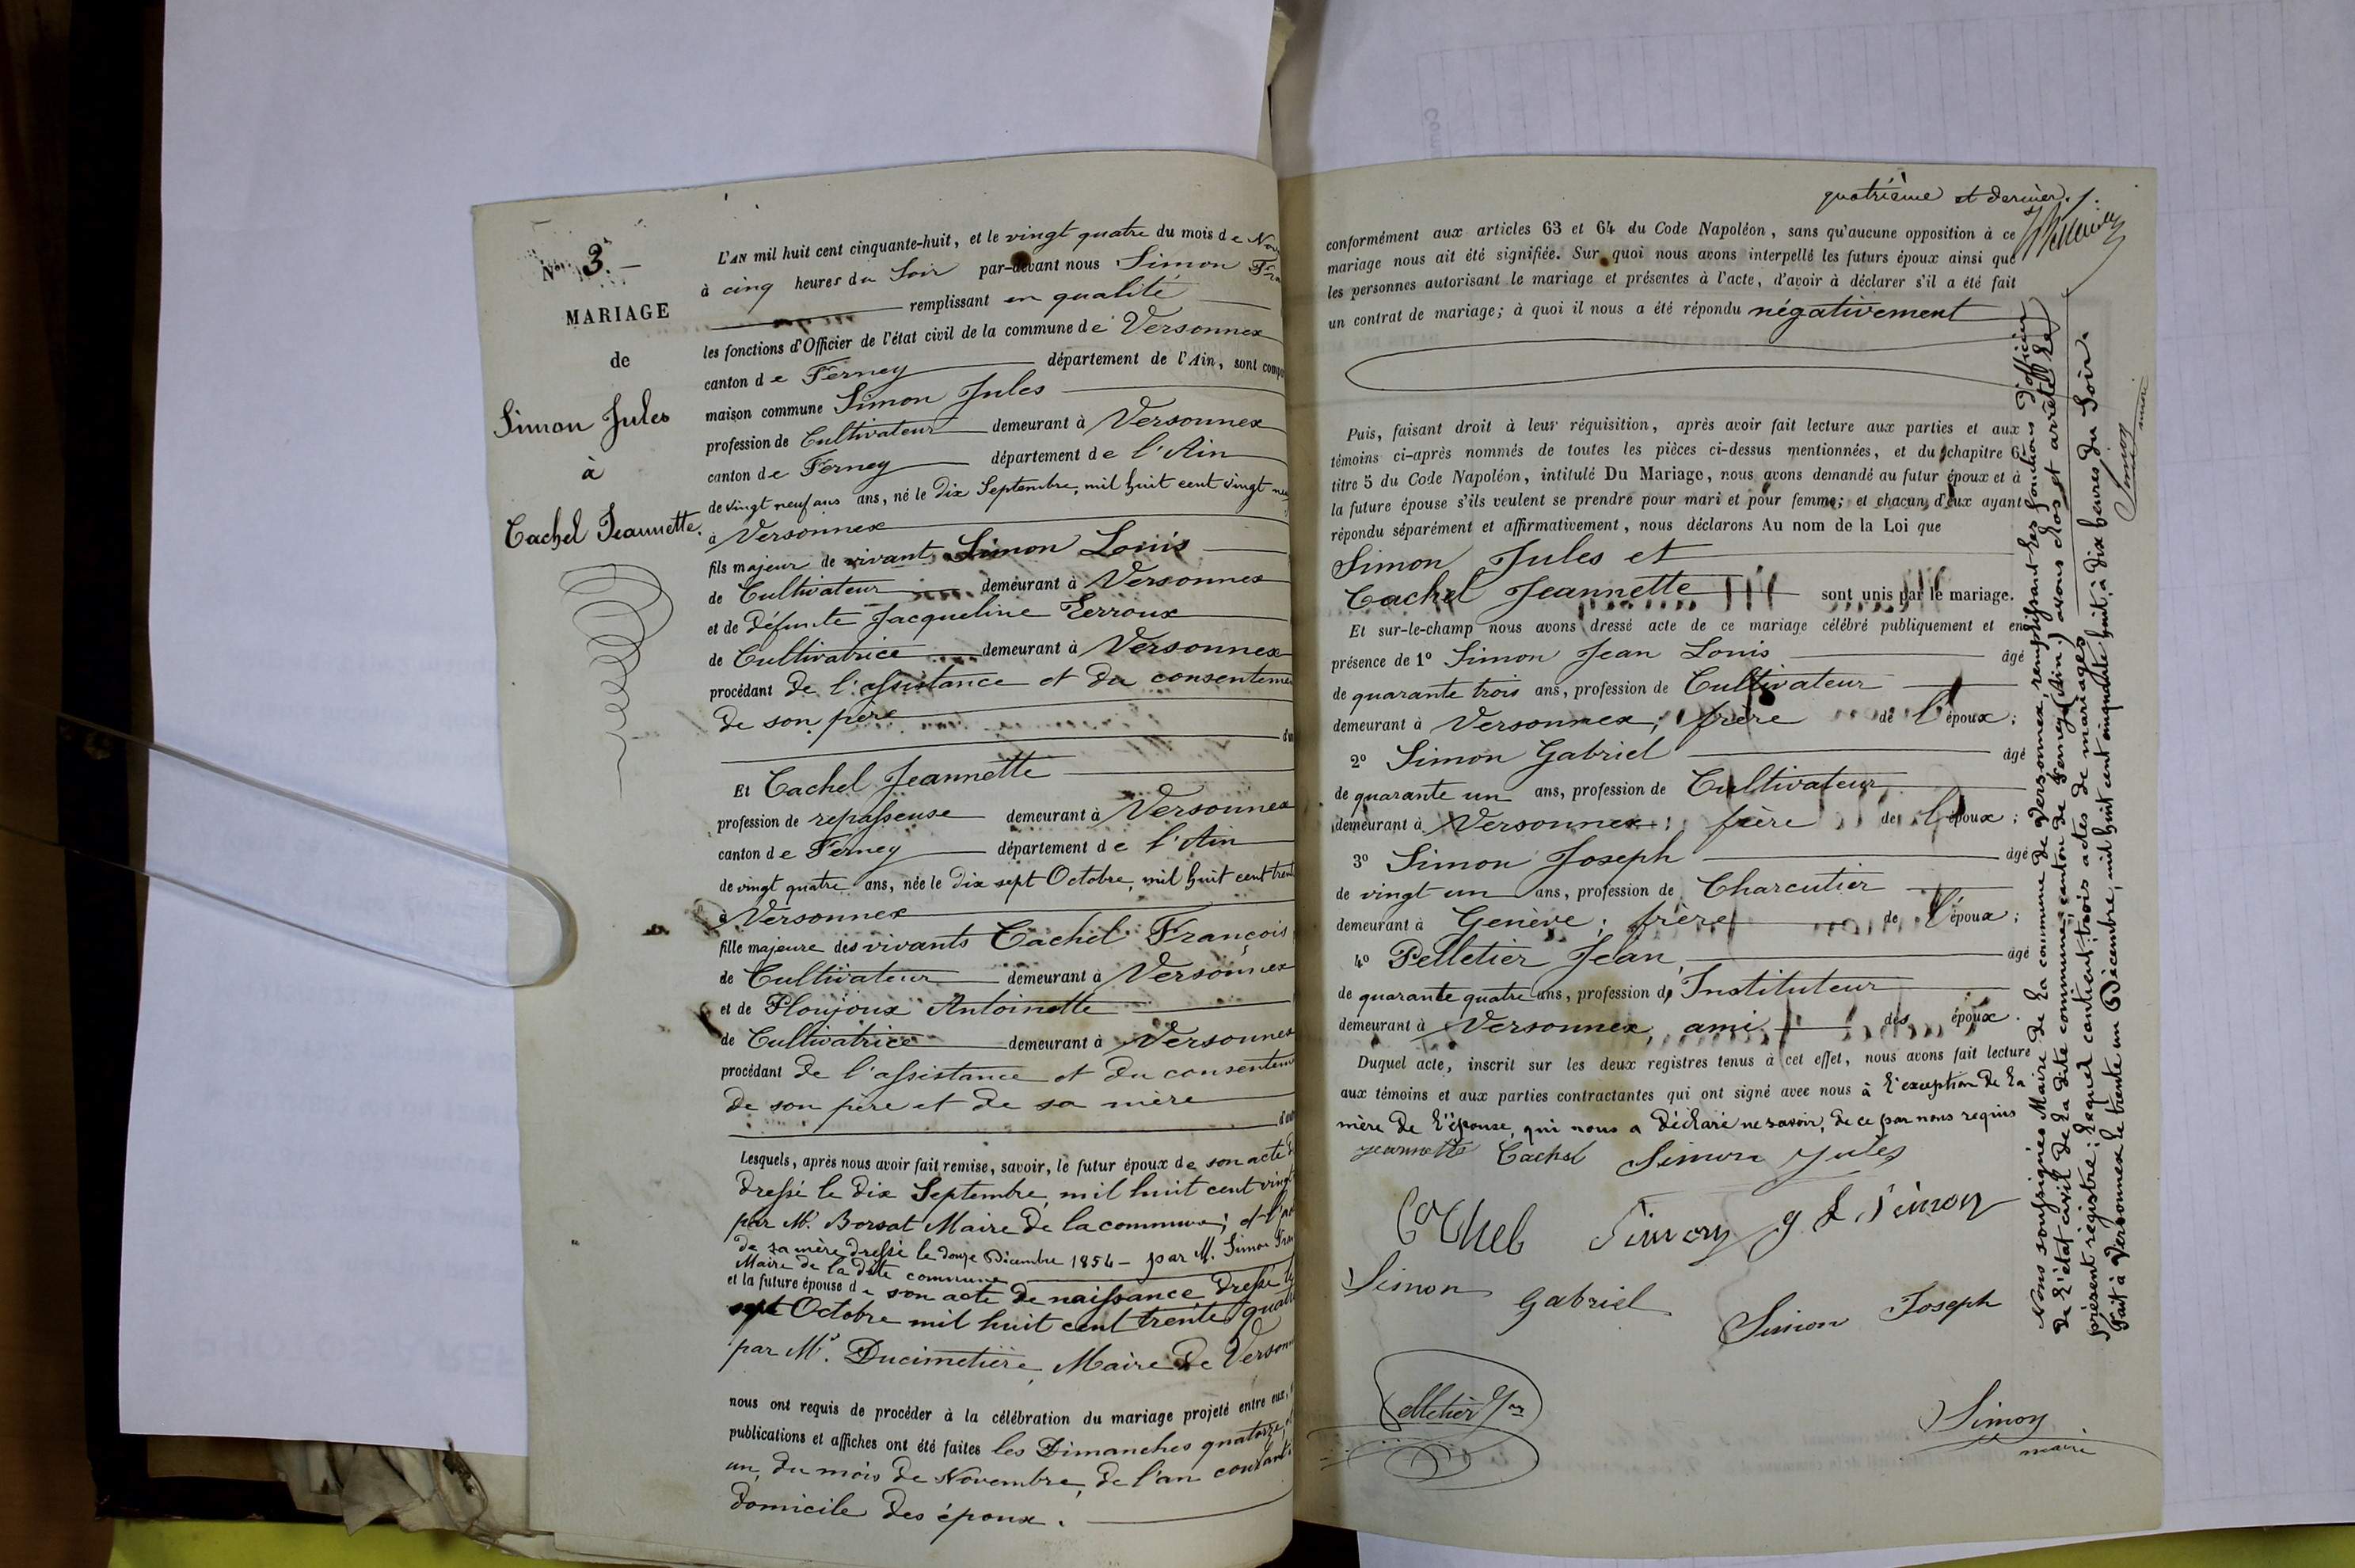 N° 3. —
MARIAGE
de
Simon Jules
à
Cachel Jeannette.
L'AN mil huit cent cinquante-huit, et le vingt quatre du mois de Nov
à cinq heures du Soir par-devant nous Simon Fra
remplissant en qualité
les fonctions d'Officier de l'état civil de la commune de Versonnex
canton de Ferney département de l'Ain, sont comp
maison commune Simon Jules
profession de Cultivateur demeurant à Versonnex
canton de Ferney département de l'Ain
de vingt neuf ans ans, né le dix Septembre, mil huit cent vingt neu
à Versonnex
fils majeur de vivant Simon Louis
de Cultivateur demeurant à Versonnex
et de défunte Jacqueline Perroux
de Cultivatrice demeurant à Versonnex
procédant de l'assistance et du consenteme
de son père
Et Cachel Jeannette
profession de repasseuse demeurant à Versonnex
canton de Ferney département de l'Ain
de vingt quatre ans, née le dix sept Octobre, mil huit cent trent
à Versonnex
fille majeure des vivants Cachel François
de Cultivateur demeurant à Versonnex
et de Ploujoux Antoinette
de Cultivatrice demeurant à Versonnex
procédant de l'assistance et du consentem
de son père et de sa mère
Lesquels, après nous avoir fait remise, savoir, le futur époux de son acte d
dressé le dix Septembre, mil huit cent vingt
par Mr. Borsat Maire de la commune; et l'ac
de sa mère dressé le douze Décembre 1854 — par M. Simon Fran
Maire de la dite commune
et la future épouse de son acte de naissance dressé le
sept Octobre mil huit cent trente quatre
par Mr. Ducimetière, Maire de Verson
nous ont requis de procéder à la célébration du mariage projeté entre eux,
publications et affiches ont été faites les Dimanches quatorze, et
un, du mois de Novembre, de l'an courant
domicile des époux.
quatrième et dernier.
conformément aux articles 63 et 64 du Code Napoléon, sans qu'aucune opposition à ce
mariage nous ait été signifiée. Sur quoi nous avons interpellé les futurs époux ainsi que
les personnes autorisant le mariage et présentes à l'acte, d'avoir à déclarer s'il a été fait
un contrat de mariage; à quoi il nous a été répondu négativement
Puis, faisant droit à leur réquisition, après avoir fait lecture aux parties et aux
témoins ci-après nommés de toutes les pièces ci-dessus mentionnées, et du chapitre 6
titre 5 du Code Napoléon, intitulé Du Mariage, nous avons demandé au futur époux et à
la future épouse s'ils veulent se prendre pour mari et pour femme; et chacun d'eux ayant
répondu séparément et affirmativement, nous déclarons Au nom de la Loi que
Simon Jules et
Cachel Jeannette sont unis par le mariage.
Et sur-le-champ nous avons dressé acte de ce mariage célébré publiquement et en
présence de 1° Simon Jean Louis âgé
de quarante trois ans, profession de Cultivateur
demeurant à Versonnex; frère de l'époux;
2° Simon Gabriel âgé
de quarante un ans, profession de Cultivateur
demeurant à Versonnex; frère de l'époux;
3° Simon Joseph âgé
de vingt un ans, profession de Charcutier
demeurant à Genève; frère de l'époux;
4° Pelletier Jean, âgé
de quarante quatre ans, profession de Instituteur
demeurant à Versonnex, ami des époux.
Duquel acte, inscrit sur les deux registres tenus à cet effet, nous avons fait lecture
aux témoins et aux parties contractantes qui ont signé avec nous à l'exception de la
mère de l'épouse, qui nous a déclaré ne savoir, de ce par nous requis
jeannette Cachel Simon Jules
Cachel Simon J L Simon
Simon Gabriel Simon Joseph
Pelletier Jean
Simon
maire
Nous soussignés Maire de la commune de Versonnex, remplissant les fonctions d'officier
de l'état civil de la dite commune, canton de Ferney (Ain) avons clos et arrêté le
présent régistre; lequel contient trois actes de mariages
Fait à Versonnex le trente un Décembre, mil huit cent cinquante huit, à dix heures du Soir.
Simon
maire